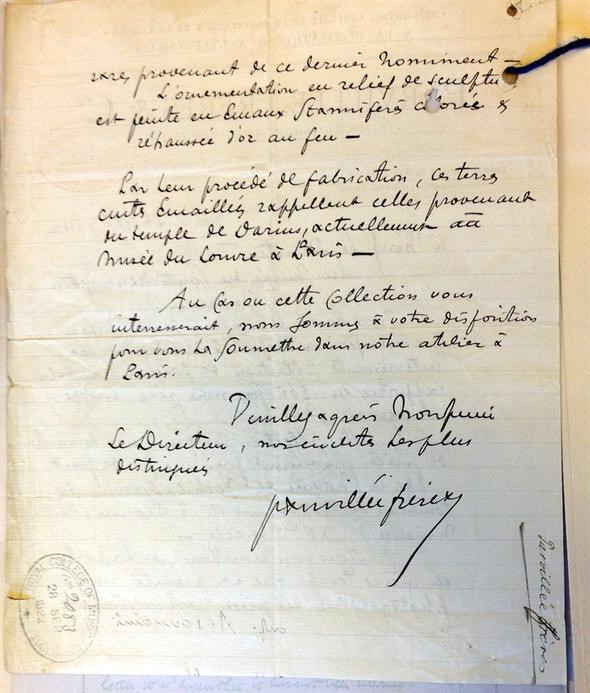 provenant de ce dernier monument —
L'ornementation en relief de sculptu
est peinte en Emaux Stannifères colorés &
réhaussée d'or au feu —
Par leur procédé de fabrication, ces terres
cuites Emaillés rappellent celles provenant
du temple de Darius, actuellement au
Musée du Louvre à Paris —
Au Cas ou cette Collection vous
interresserait, nous sommes à votre disposition
pour vous la Soumettre dans notre atelier à
Paris.
Veuillez agréer Monsieur
Le Directeur, nos civilités les plus
distingués
Parvillée frères
Parvillée frères
ROYAL COLLEGE OF MUSIC
2083
28 SEP